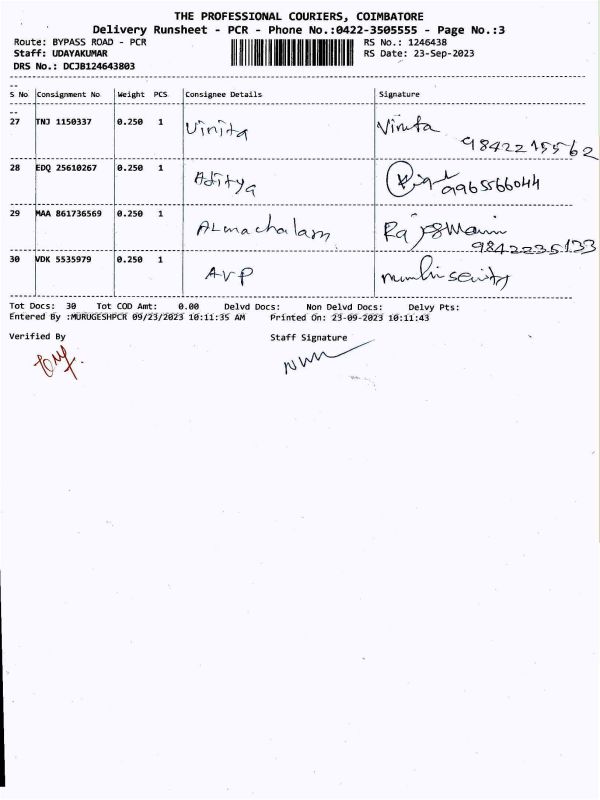 THE PROFESSIONAL COURIERS, COIMBATORE
Delivery Runsheet - PCR - Phone No.:0422-3505555 - Page No.:3
Route: BYPASS ROAD - PCR RS No.: 1246438
Staff: UDAYAKUMAR RS Date: 23-Sep-2023
DRS No.: DCJB124643803
S No Consignment No Weight PCS Consignee Details Signature
27 TNJ 1150337 0.250 1 Vinita Vinita
9842215562
28 EDQ 25610267 0.250 1 Aditya 9965566044
29 MAA 861736569 0.250 1 9842235133
30 VDK 5535979 0.250 1 AVP
Tot Docs: 30 Tot COD Amt: 0.00 Delvd Docs: Non Delvd Docs: Delvy Pts:
Entered By :MURUGESHPCR 09/23/2023 10:11:35 AM Printed On: 23-09-2023 10:11:43
Verified By Staff Signature